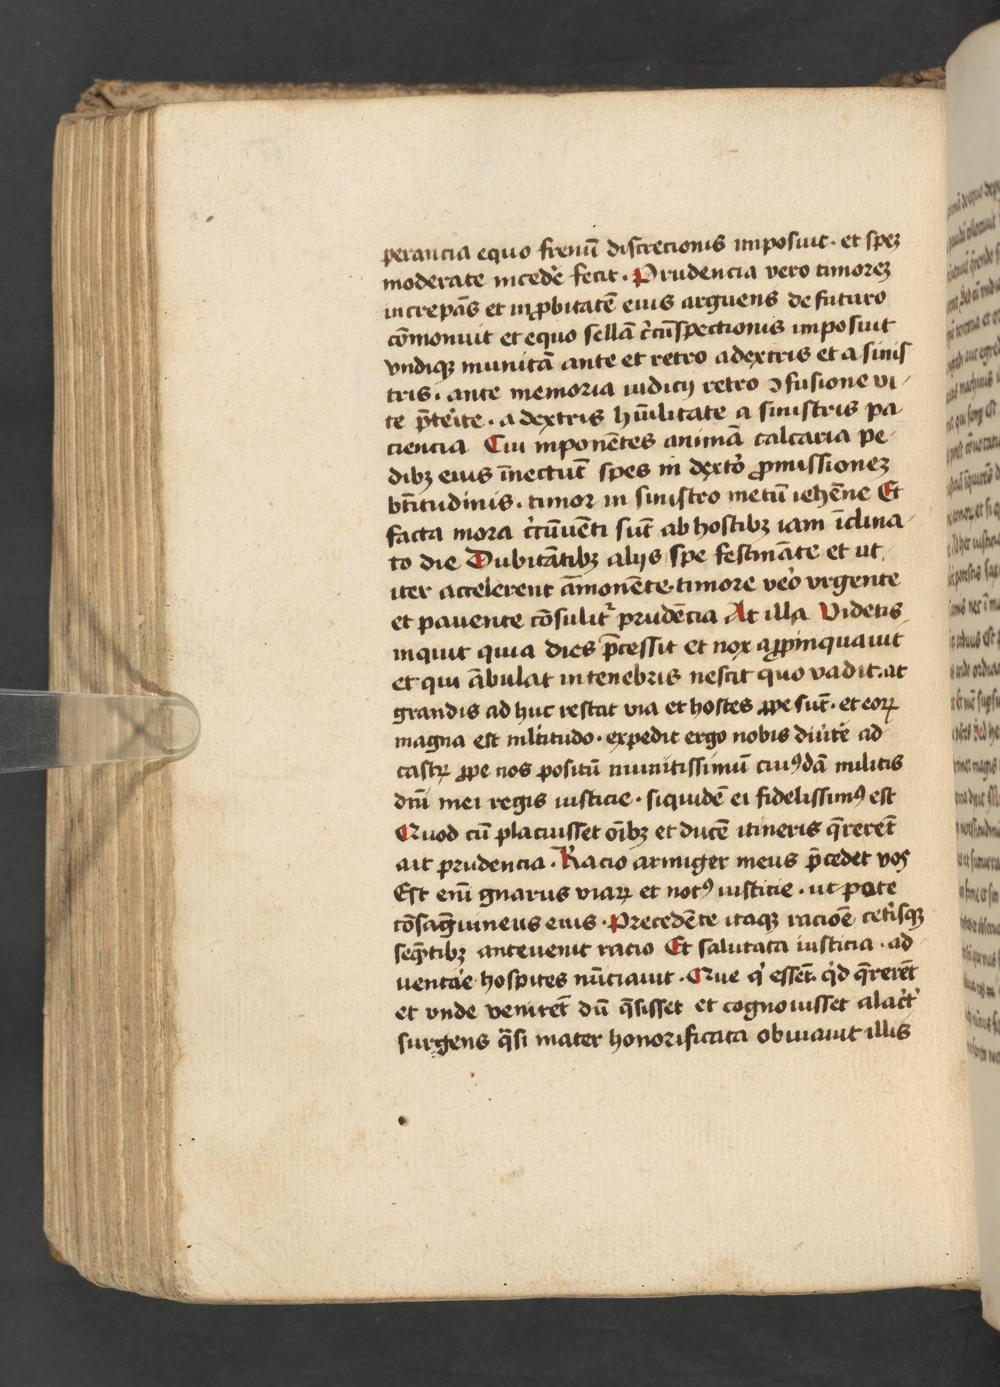 perancia equo frenū discrecionis imposuit · et speꝫ
moderate incedē fecit · Prudencia vero timoreꝫ
increpās et inꝓbitatē eius arguens de futuro
cōmonuit et equo sellā c̄cūspectionis imposuit
vndiqꝫ munitā ante et retro a dextris et a sinis
tris · ante memoria iudicij retro ꝯfusione vi
te p̄terite · a dextris hūilitate a sinistris pa
ciencia Cui inponētes animā calcaria pe
dibꝫ eius īnectūt spes in dextō ꝓmissioneꝫ
btītudinis · timor in sinistro metū iehēne Et
facta mora c̄cūuēti sūt ab hostibꝫ iam īclina
to die Dubitātibꝫ alijs spe festināte et ut
iter accelerent āmonēte · timore veo vrgente
et pauente cōsulit᷑ prudēcia At illa Videtis
inquit quia dies p̄cessit et nox aꝓpinquauit
et qui ābulat in tenebris nescit quo vadit · at
grandis ad huc restat via et hostes ꝓpe sūt · et eoꝝ
magna est ml̄titudo · expedit ergo nobis diūtē ad
castꝝ ꝓpe nos positū munitissimū cuiꝰdā militis
dn̄i mei regis iusticie · siquidē ei fidelissimꝰ est
Quod cū placuisset oībꝫ et ducē itineris q̄rerēt
ait prudencia · Racio armiger meus p̄cedet vos
Est enī gnarus viaꝝ et notꝰ iusticie · ut pote
cōsag̅uineus eius · Precedēte itaqꝫ racōe cet̄isqꝫ
seq̄tibꝫ anteuenit racio Et salutata iusticia · ad
uentāe hospites nūciauit · Que qͥ essēt qͥd q̄rerēt
et vnde venirēt dū q̄sisset et cognouisset alacͥt᷑
surgens q̄si mater honorificata obuiauit illis